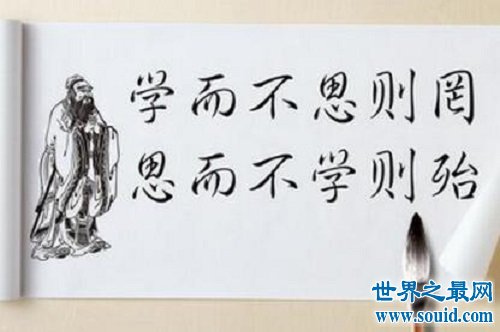 学而不思则罔
思而不学则殆
世界之最网
www.souid.com